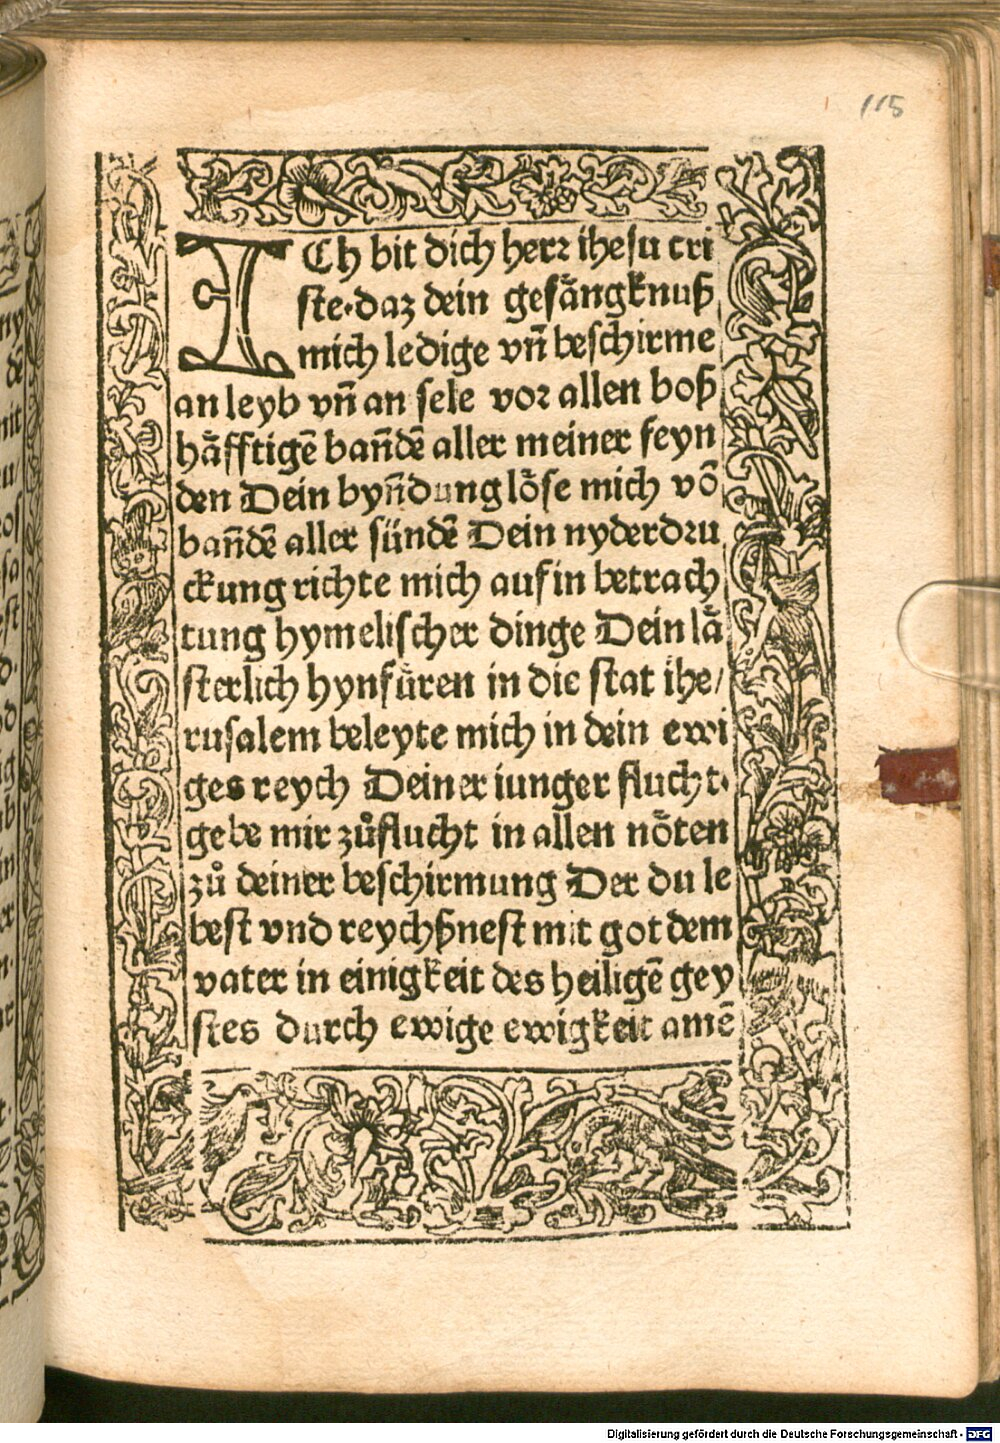 115
ICh bit dich herr ihesu cri
ste·daz dein gefångknuß
mich ledige vn̄ beschirme
an leyb vn̄ an sele vor allen boß
håfftigē ban̄dē aller meiner feyn
den Dein byn̄dung lőse mich vō
ban̄dē aller sündē Dein nyderdru
ckung richte mich auf in betrach
tung hymelischer dinge Dein lå
sterlich hynfůren in die stat ihe/
rusalem beleyte mich in dein ewi
ges reych Deiner iunger flucht·
gebe mir zůflucht in allen nőten
zů deiner beschirmung Der du le
best vnd reychßnest mit got dem
vater in einigkeit des heiligē gey
stes durch ewige ewigkeit amē
Digitalisierung gefördert durch die Deutsche Forschungsgemeinschaft - DFG